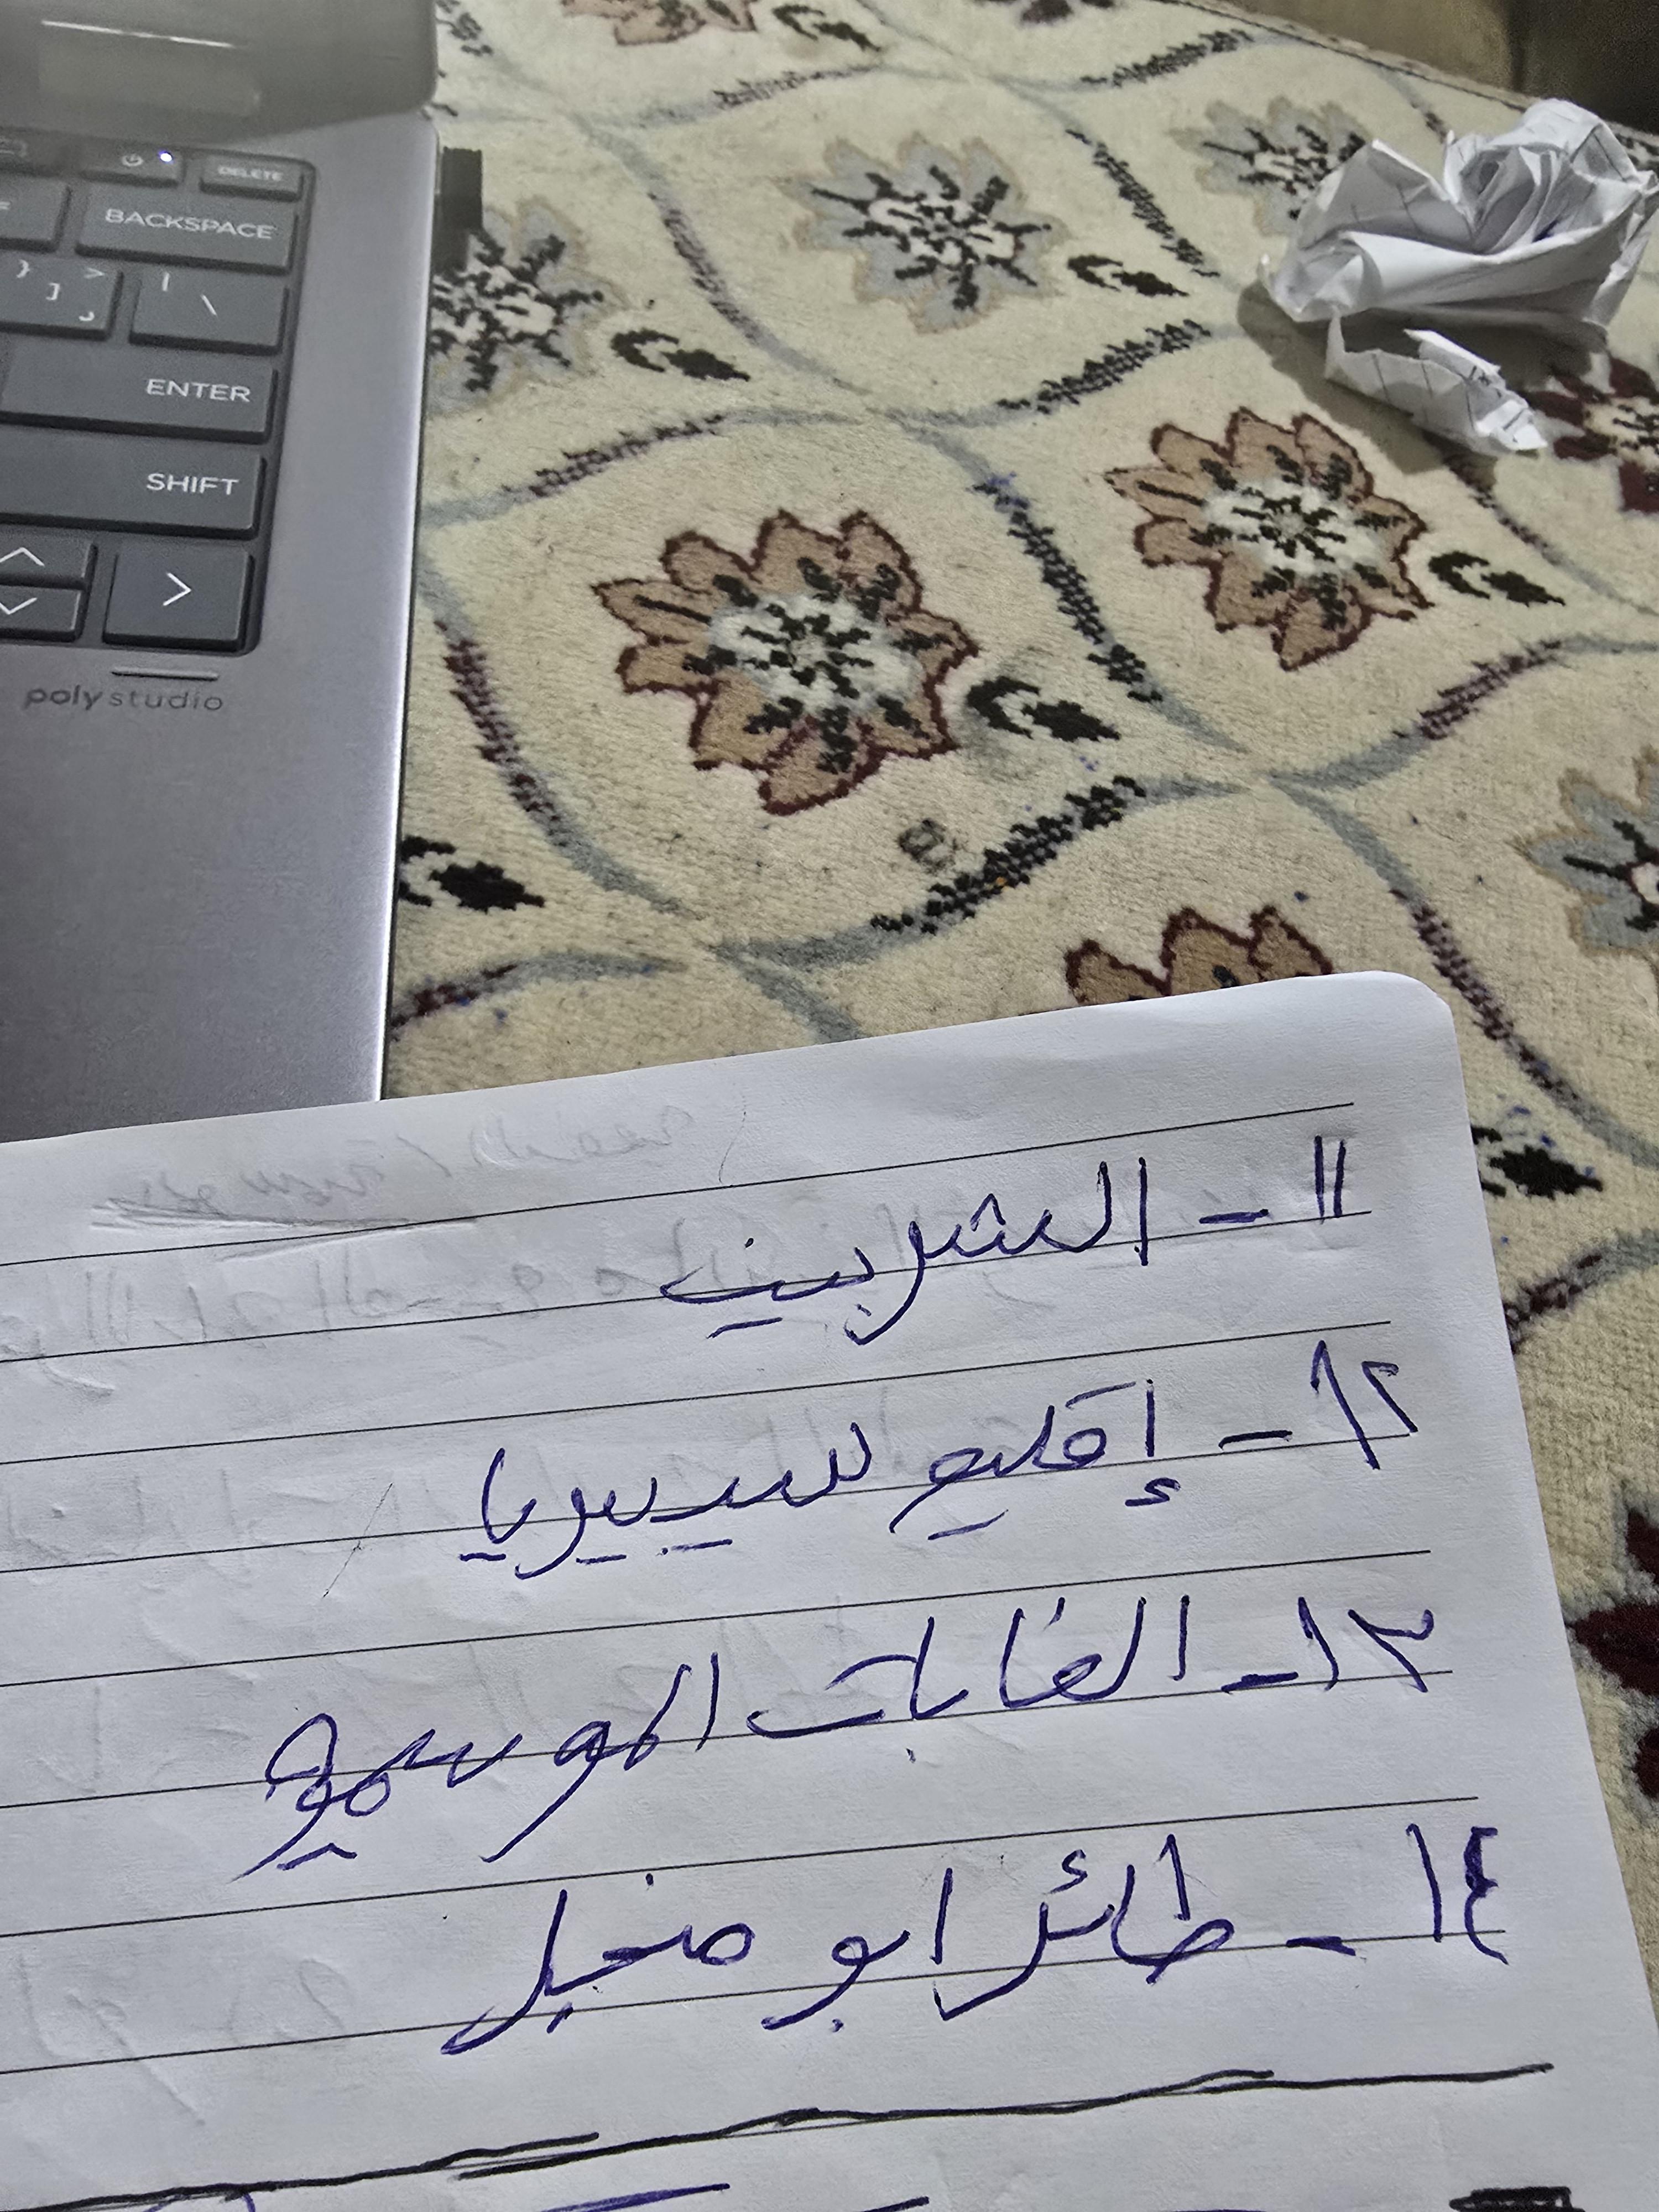 DELETE
BACKSPACE
ENTER
SHIFT
poly studio
١١ - الشربين
١٢ - إقليم سيبيريا
١٣ - الغابات الموسمية
١٤ - طائر ابو منجل